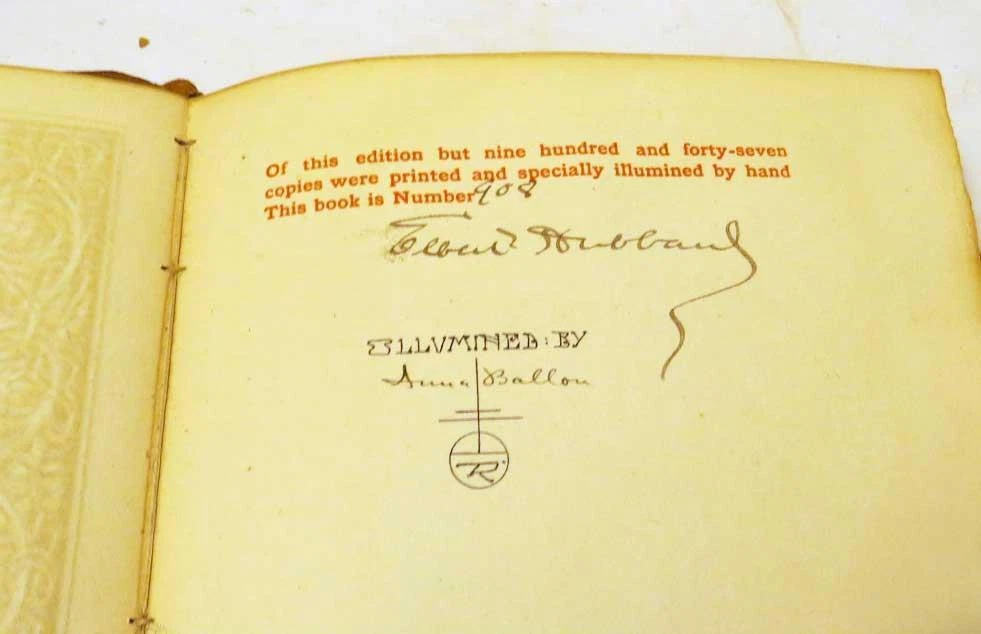 Of this edition but nine hundred and forty-seven
copies were printed and specially illumined by hand
This book is Number 908
Elbert Hubbard
ILLVMINED: BY
Anna Ballou
R